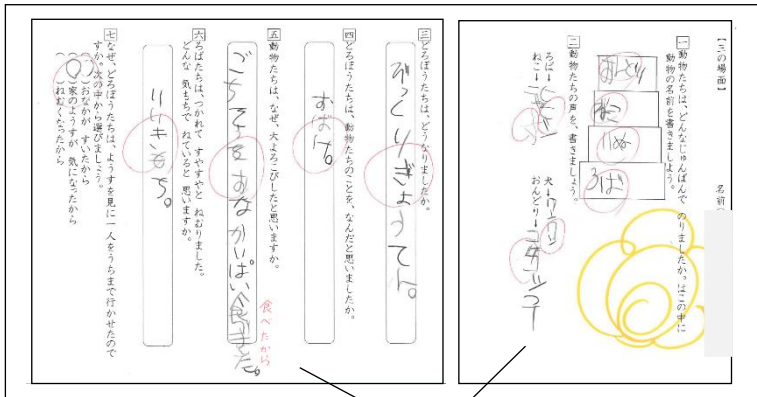 【三の場面】 名前（
一 動物たちは、どんなじゅんばんで のりましたか。はこの中に
動物の名前を書きましょう。
おんどり
ねこ
いぬ
ろば
二 動物たちの声を、書きましょう。
ろば→
犬→ワンワン
ねこ→
おんどり→
三 どろぼうたちは、どうなりましたか。
びっくりぎょうてん。
四 どろぼうたちは、動物たちのことを、なんだと思いましたか。
おばけ。
五 動物たちは、なぜ、大よろこびしたと思いますか。
ごちそうをおなかいっぱい食べました。
食べたから
六 ろばたちは、つかれて すやすやと ねむりました。
どんな 気もちで ねていると 思いますか。
いいきもち。
七 なぜ、どろぼうたちは、ようすを見に一人をうちまで行かせたので
すか。次の中から選びましょう。
（ ）おなかが すいたから
（○）家のようすが 気になったから
（ ）ねむくなったから